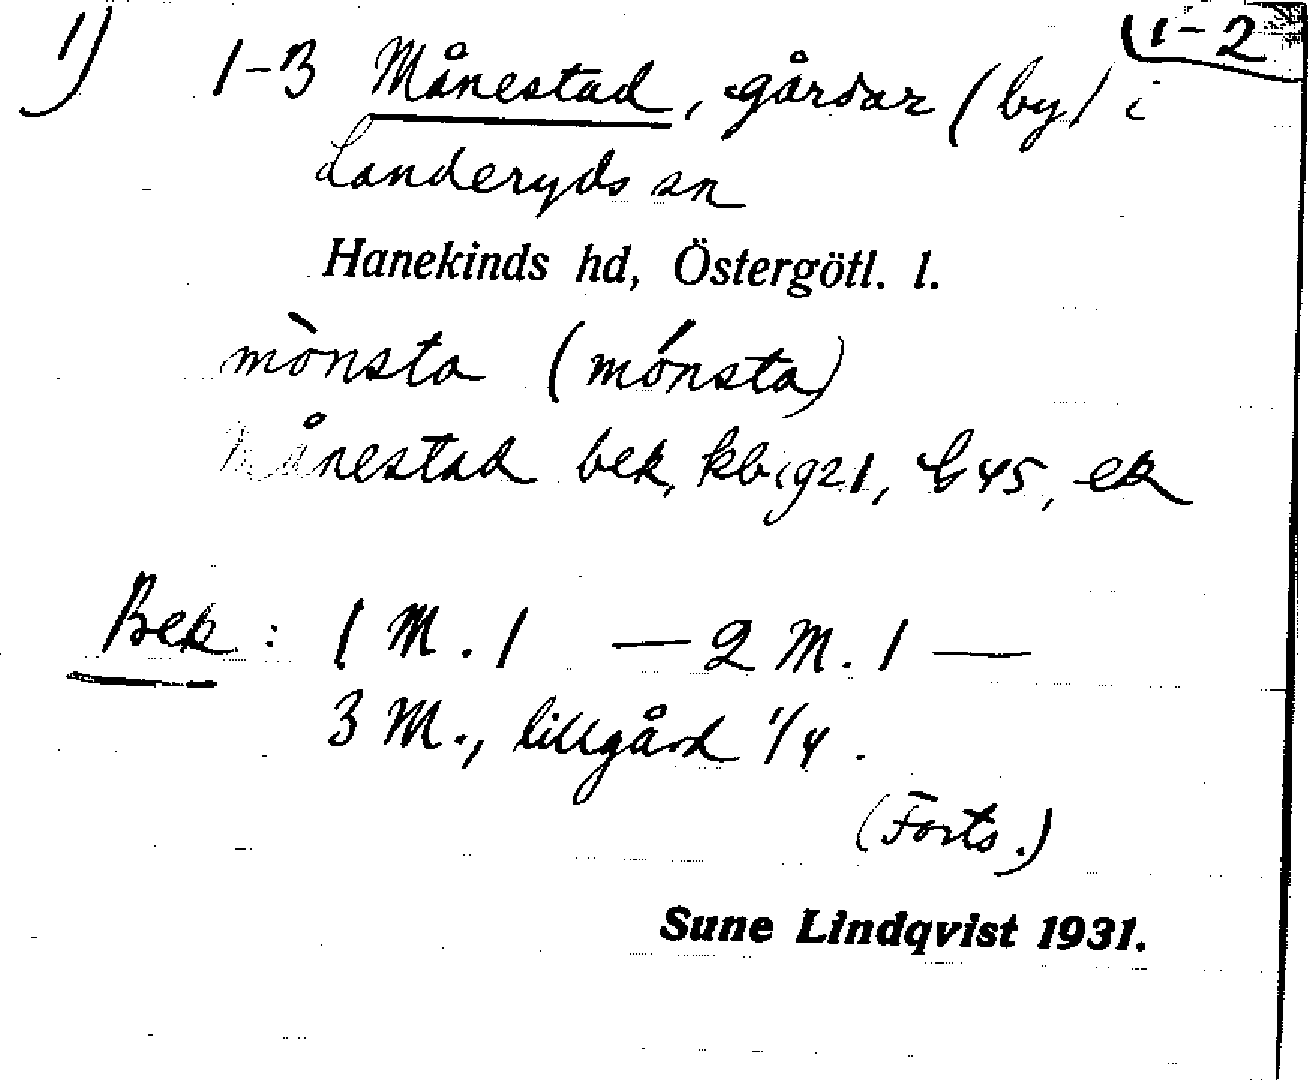 1) 1-3 Månestad, gårdar (by) i (1-2
Landeryds sn
Hanekinds hd, Östergötl. l.
mònsta (mónsta)
Månestad bek, kb. 1921, G 45, ek
Bek: 1 M. 1 — 2 M. 1 —
3 M., lillgård 1/4.
(Forts.)
Sune Lindqvist 1931.